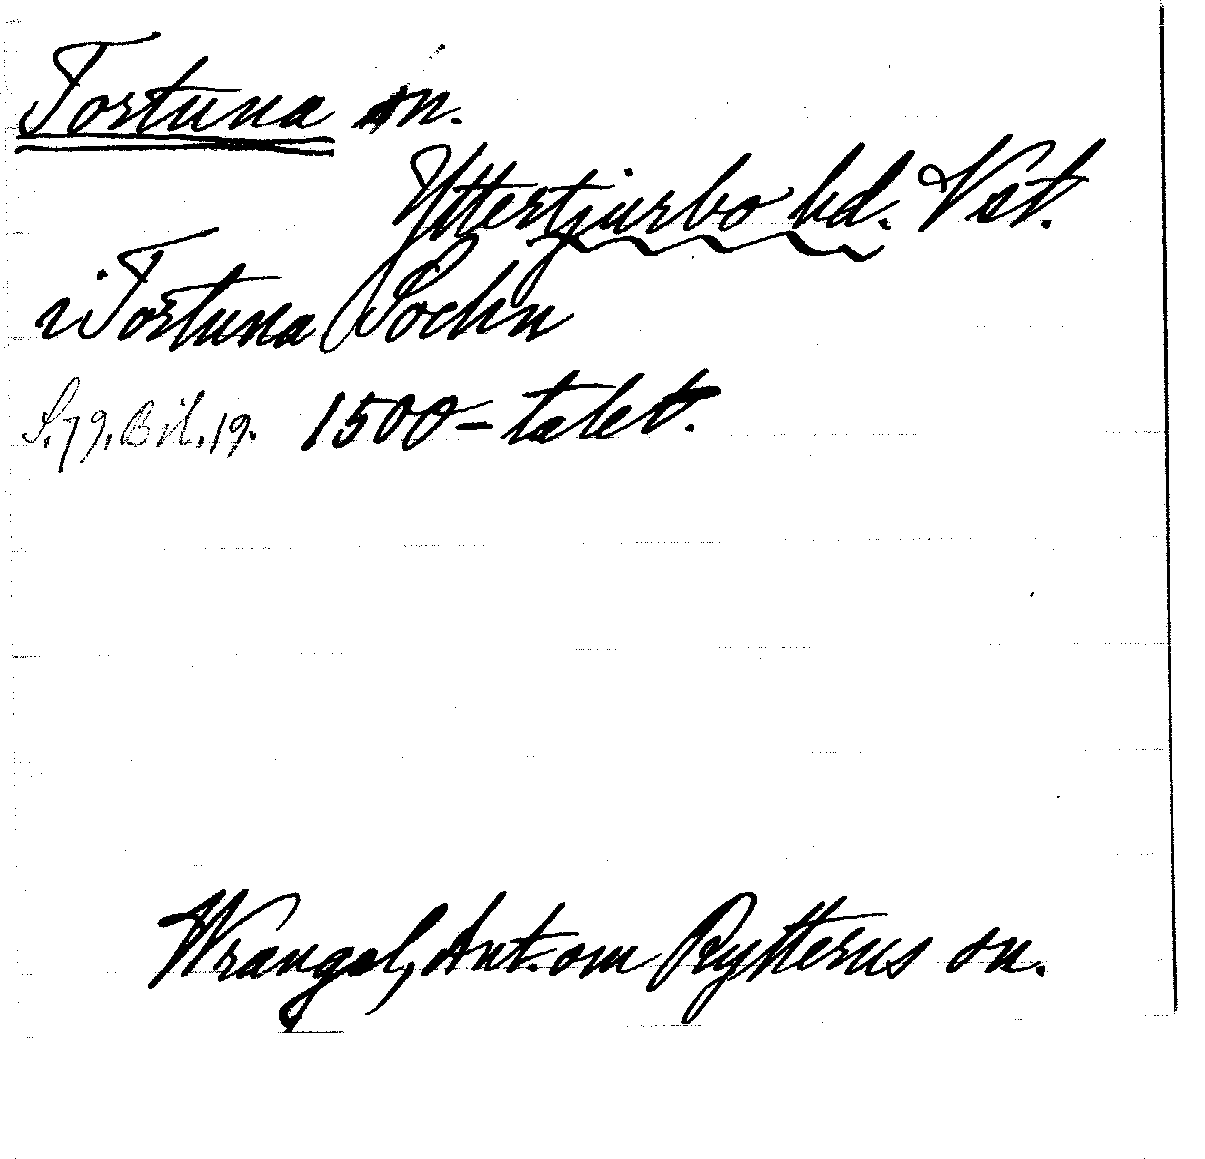 Tortuna sn.
Yttertjurbo hd. Vst.
i Tortuna Sochn
S. 79, Bil. 19. 1500-talet.
Wrangel, Ant. om Rytterns sn.